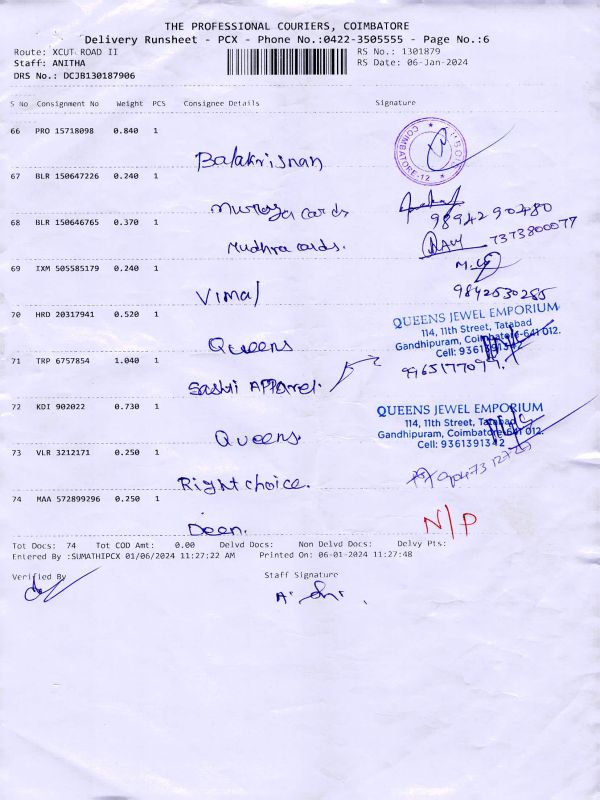 THE PROFESSIONAL COURIERS, COIMBATORE
Delivery Runsheet - PCX - Phone No.:0422-3505555 - Page No.:6
Route: XCUT ROAD II
RS No.: 1301879
Staff: ANITHA
RS Date: 06-Jan-2024
DRS No.: DCJB130187906
S No Consignment No Weight PCS Consignee Details Signature
66 PRO 15718098 0.840 1
Balakrisnan
COIMBATORE-12
67 BLR 150647226 0.240 1
cards
9894290480
68 BLR 150646765 0.370 1
Mudhra cards.
RAVI 7373800077
69 IXM 505585179 0.240 1
Vimal
9842530285
70 HRD 20317941 0.520 1
Queens
QUEENS JEWEL EMPORIUM
114, 11th Street, Tatabad
Gandhipuram, Coimbatore-641 012.
Cell: 9361391342
71 TRP 6757854 1.040 1
Apparel.
72 KDI 902022 0.730 1
Queens.
QUEENS JEWEL EMPORIUM
114, 11th Street, Tatabad
Gandhipuram, Coimbatore-641 012.
Cell: 9361391342
73 VLR 3212171 0.250 1
Right choice.
74 MAA 572899296 0.250 1
Deen.
N/P
Tot Docs: 74 Tot COD Amt: 0.00 Delvd Docs: Non Delvd Docs: Delvy Pts:
Entered By :SUMATHIPCX 01/06/2024 11:27:22 AM Printed On: 06-01-2024 11:27:48
Verified By
Staff Signature